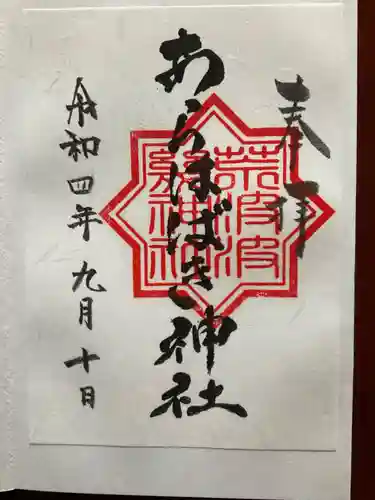 奉拝
あらはばき神社
荒波波
幾神社
令和四年九月十日